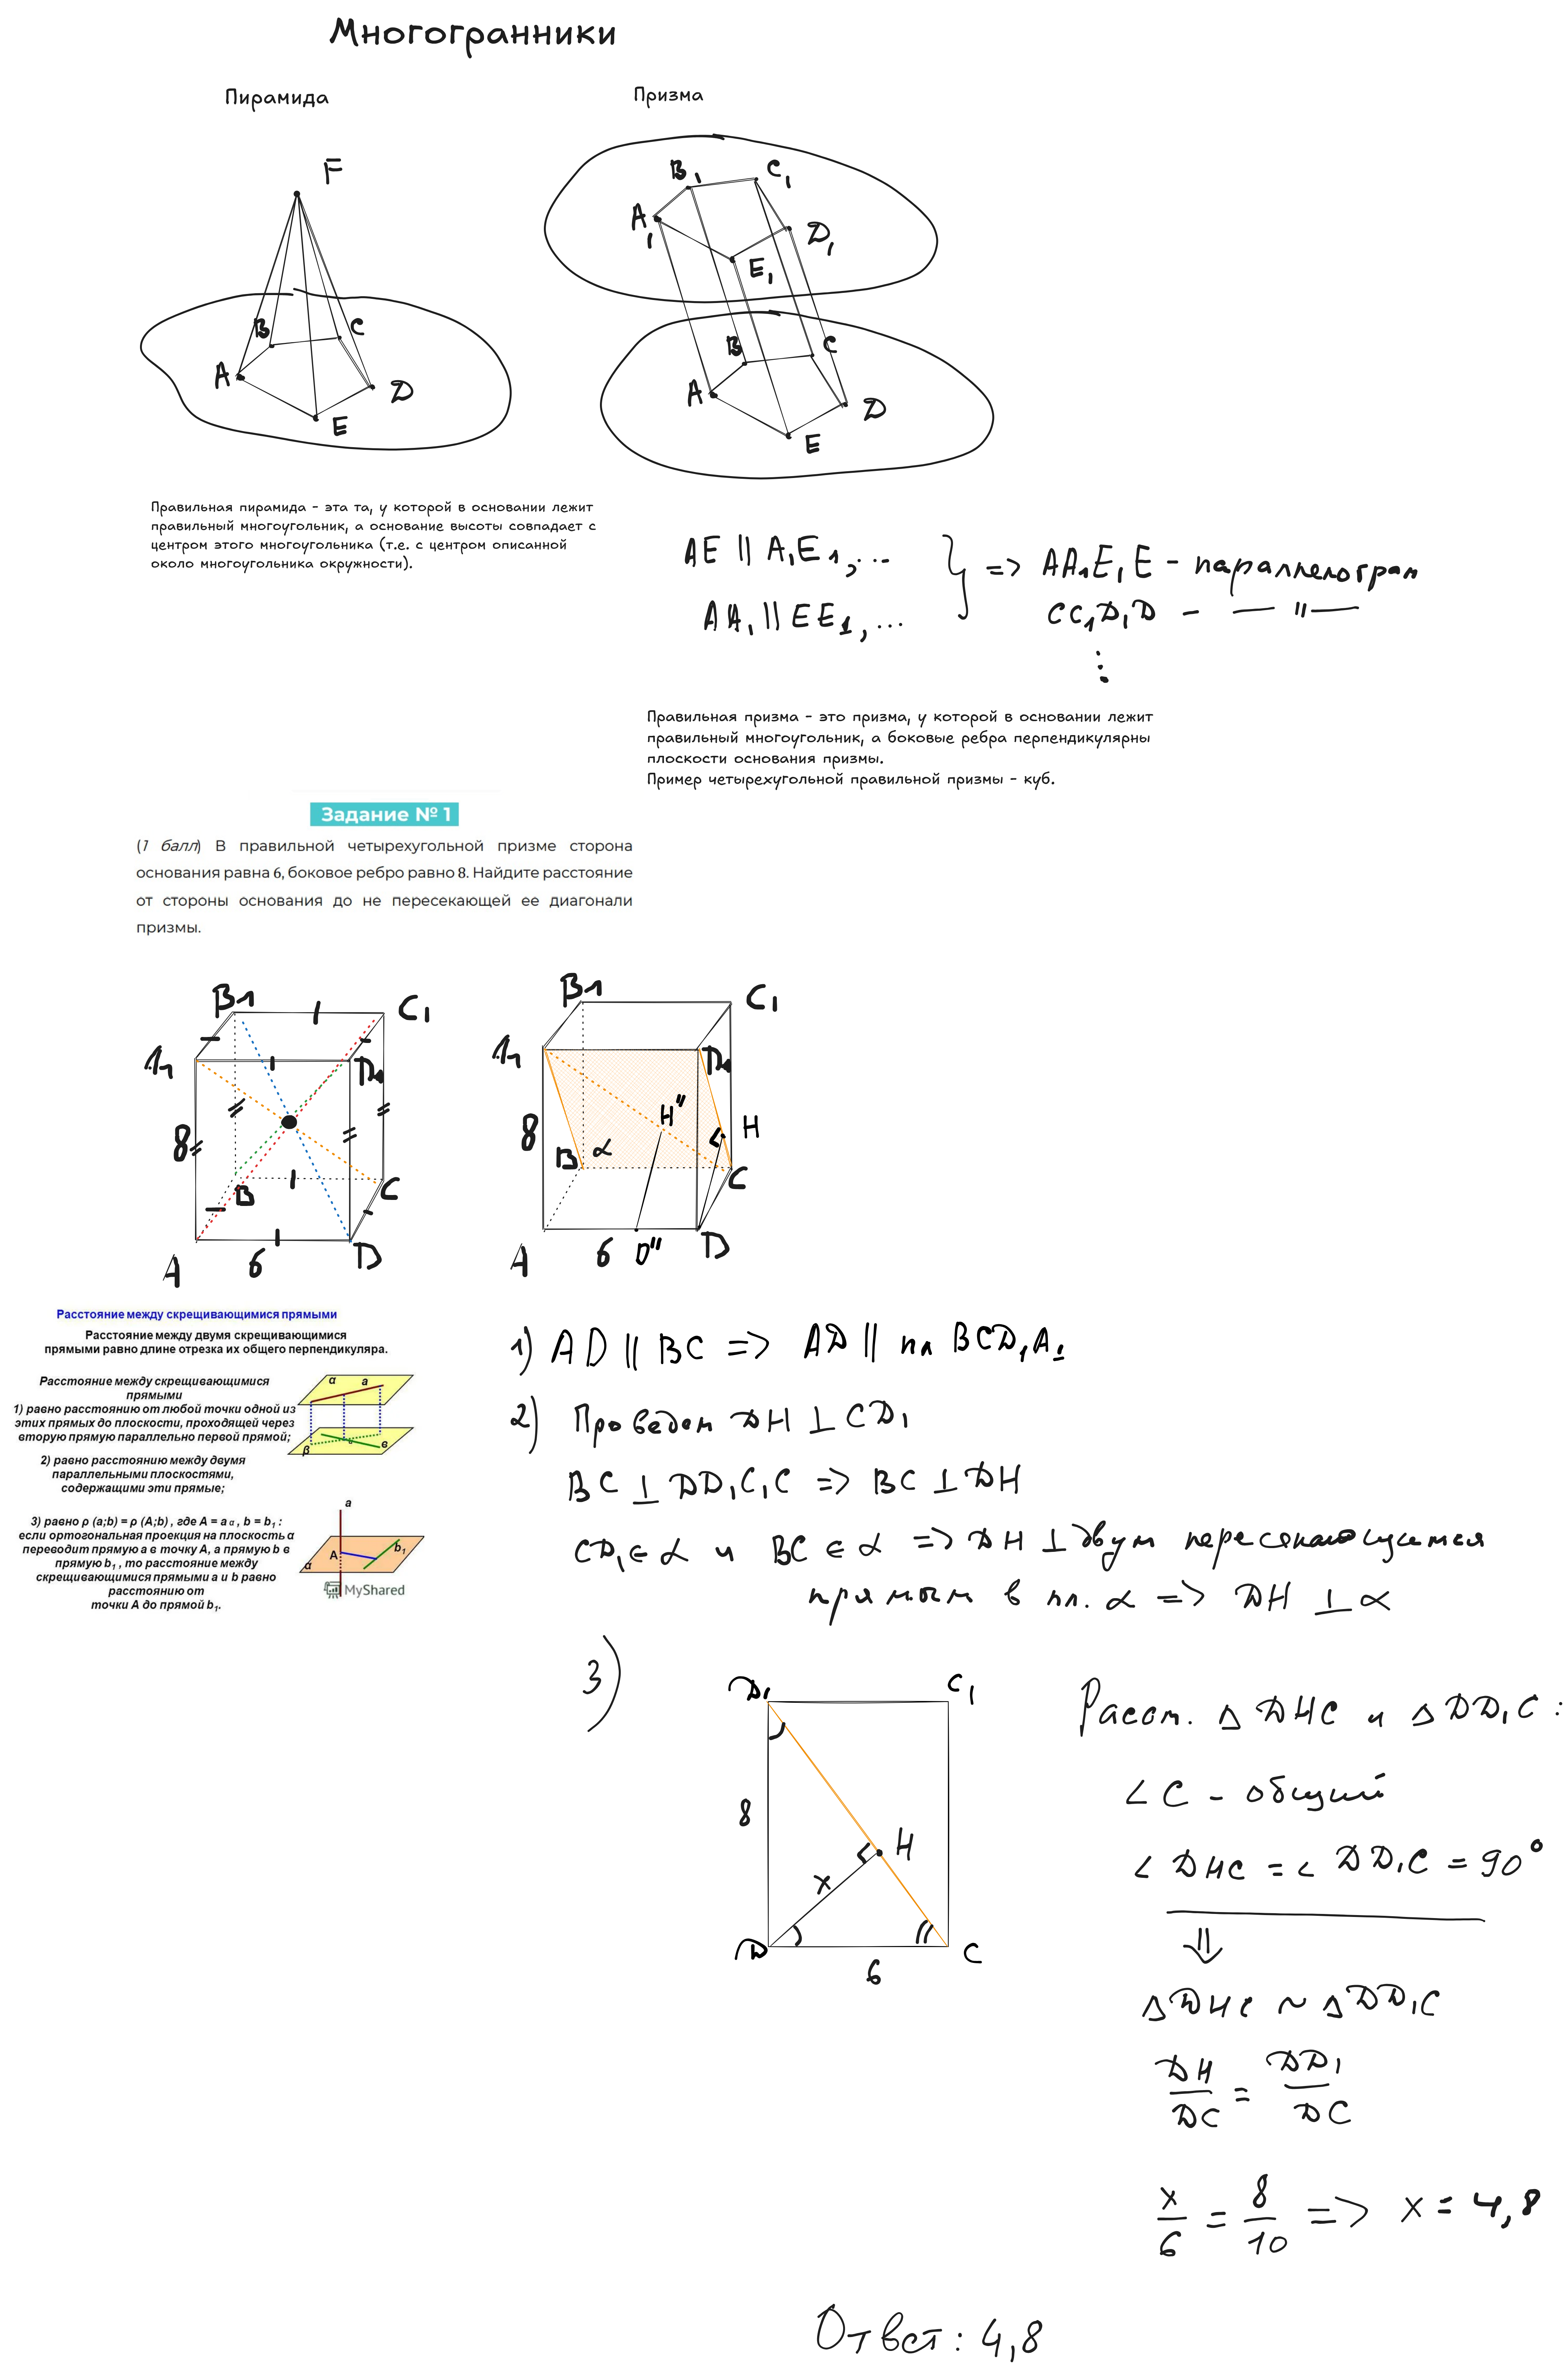 Многогранники
Пирамида
Призма
F
B
C
A
D
E
B₁
C₁
A₁
D₁
E₁
B
C
A
D
E
Правильная пирамида - эта та, у которой в основании лежит
правильный многоугольник, а основание высоты совпадает с
центром этого многоугольника (т.е. с центром описанной
около многоугольника окружности).
AE || A₁E₁,...
AA₁ || EE₁,...
} => AA₁E₁E - параллелограм
CC₁D₁D - — " —
⋮
Правильная призма - это призма, у которой в основании лежит
правильный многоугольник, а боковые ребра перпендикулярны
плоскости основания призмы.
Пример четырехугольной правильной призмы - куб.
Задание № 1
(1 балл) В правильной четырехугольной призме сторона
основания равна 6, боковое ребро равно 8. Найдите расстояние
от стороны основания до не пересекающей ее диагонали
призмы.
B₁
C₁
A₁
D₁
8
B
C
A
6
D
B₁
C₁
A₁
D₁
H"
8
H
B
α
C
A
6
D"
D
Расстояние между скрещивающимися прямыми
Расстояние между двумя скрещивающимися
прямыми равно длине отрезка их общего перпендикуляра.
Расстояние между скрещивающимися
прямыми
1) равно расстоянию от любой точки одной из
этих прямых до плоскости, проходящей через
вторую прямую параллельно первой прямой;
α
a
β
в
2) равно расстоянию между двумя
параллельными плоскостями,
содержащими эти прямые;
3) равно ρ (a;b) = ρ (A;b) , где A = a α , b = b₁ :
если ортогональная проекция на плоскость α
переводит прямую a в точку A, а прямую b в
прямую b₁ , то расстояние между
скрещивающимися прямыми a и b равно
расстоянию от
точки A до прямой b₁.
a
A
b₁
α
MyShared
1) AD || BC => AD || пл BCD₁A₁
2) Проведем DH ⊥ CD₁
BC ⊥ DD₁C₁C => BC ⊥ DH
CD₁ ∈ α и BC ∈ α => DH ⊥ двум пересекающимся
прямым в пл. α => DH ⊥ α
3)
D₁
C₁
8
H
x
D
C
6
Рассм. Δ DHC и Δ DD₁C :
∠ C - общий
∠ DHC = ∠ DD₁C = 90°
⇓
Δ DHC ~ Δ DD₁C
DH/DC = DD₁/DC
x/6 = 8/10 => x = 4,8
Ответ: 4,8